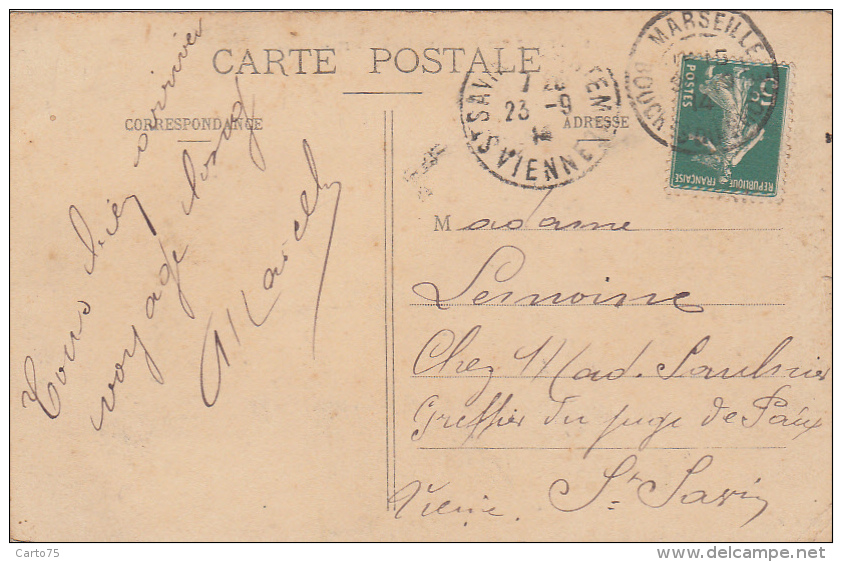 CARTE POSTALE
CORRESPONDANCE
ADRESSE
Tous bien arriver
voyage long
Marcel
MARSEILLE
BOUCHES
23 -9
VIENNE
5
POSTES
REPUBLIQUE FRANÇAISE
Madame
Lemoine
Chez Mad. Saulnier
Greffier du juge de Paix
St Savin
Vienne.
Carto75
www.delcampe.net